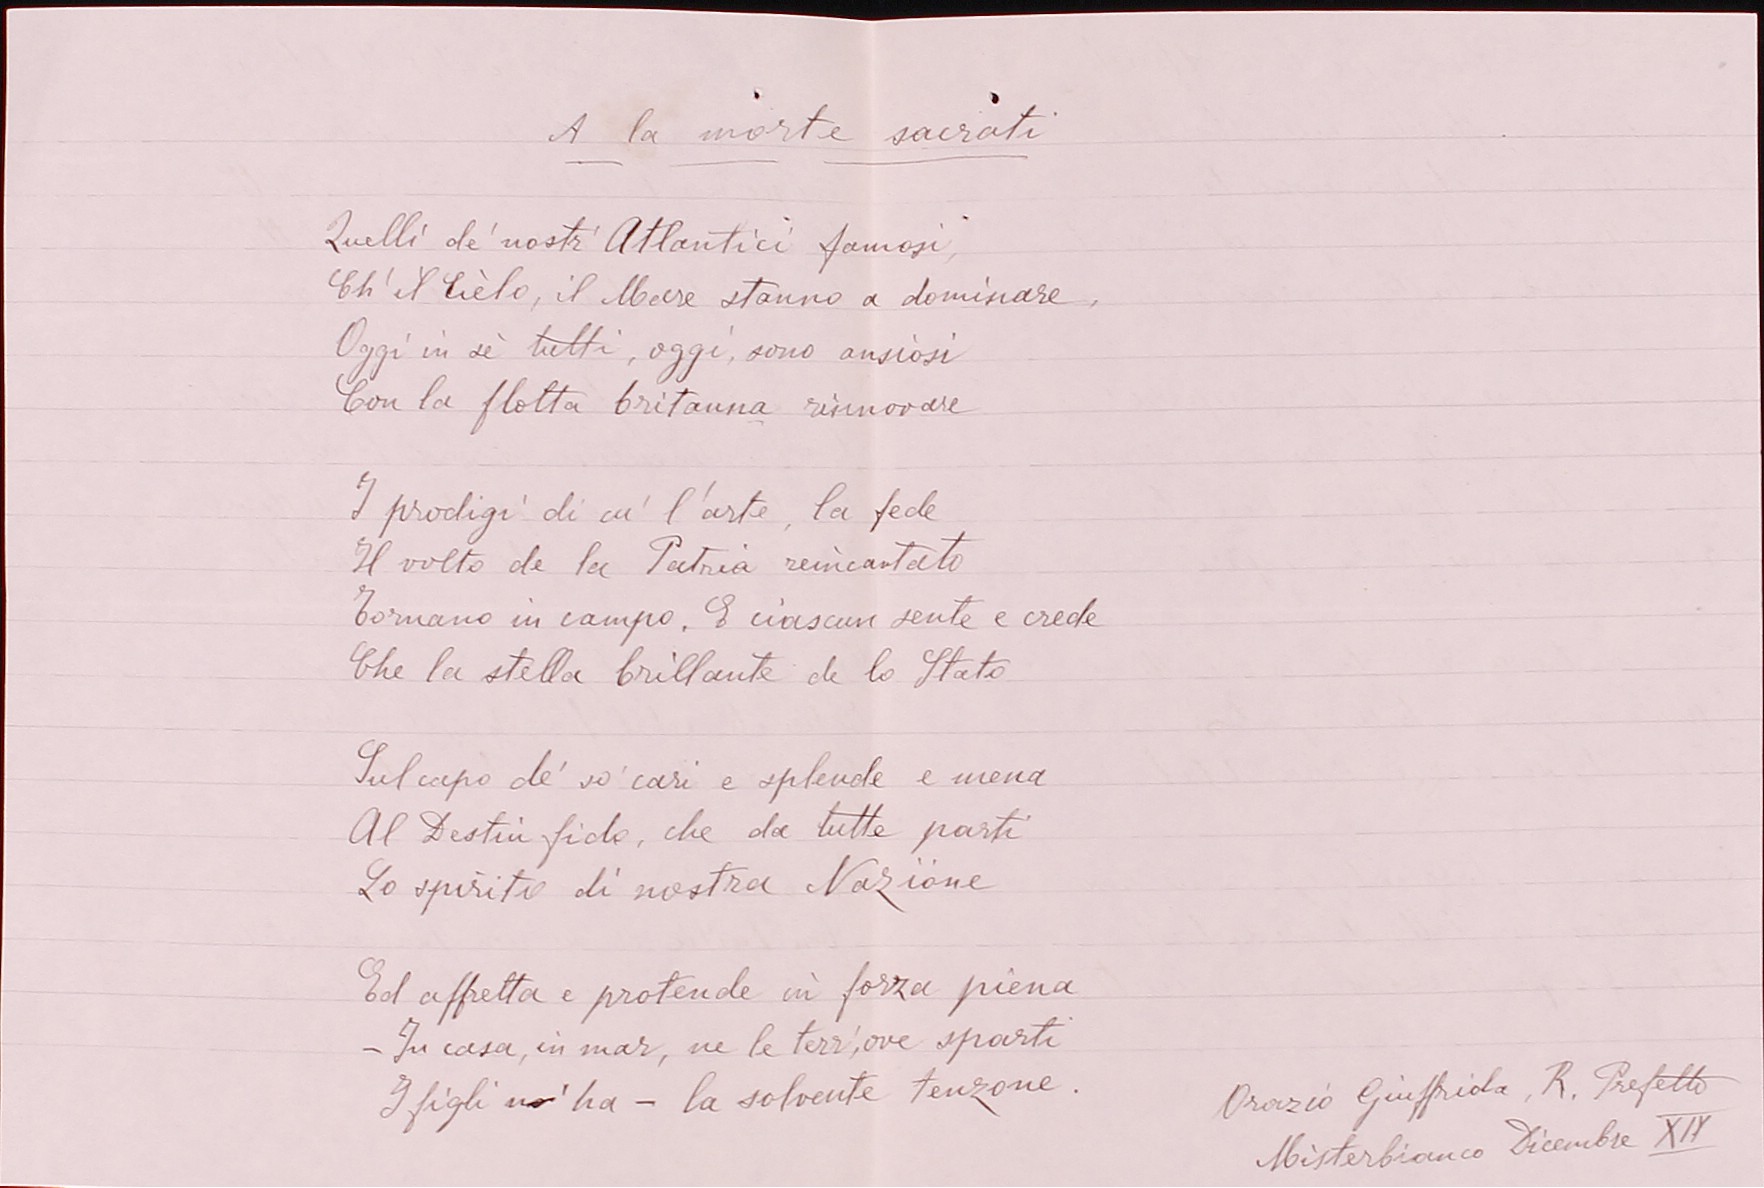 A la morte sacrati
Quelli de' nostr' Atlantici famosi,
Ch' il Cièlo, il Mare stanno a dominare,
Oggi in sè tutti, oggi, sono ansiosi
Con la flotta britanna rinnovare
I prodigi di cu' l'arte, la fede
Il volto de la Patria reincantato
Tornano in campo. E ciascun sente e crede
Che la stella brillante de lo Stato
Sul capo de' so' cari e splende e mena
Al Destin fido, che da tutte parti
Lo spirito di nostra Nazïone
Ed affretta e protende in forza piena
– In casa, in mar, ne le terr', ove sparti
I figli ha – la solvente tenzone.
Orazio Giuffrida, R. Prefetto
Misterbianco Dicembre XIX